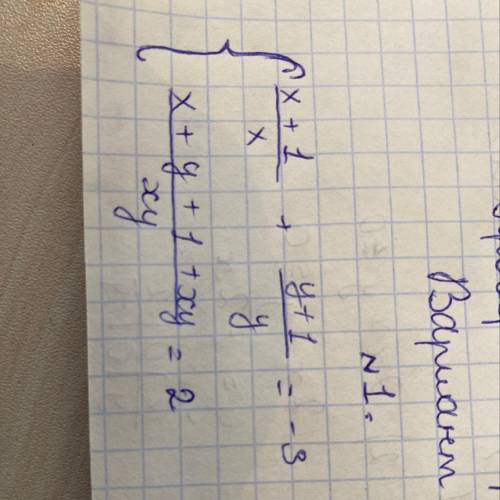 Вариант
№1.
{ (x+1)/x + (y+1)/y = -3
(x+y+1+xy)/xy = 2